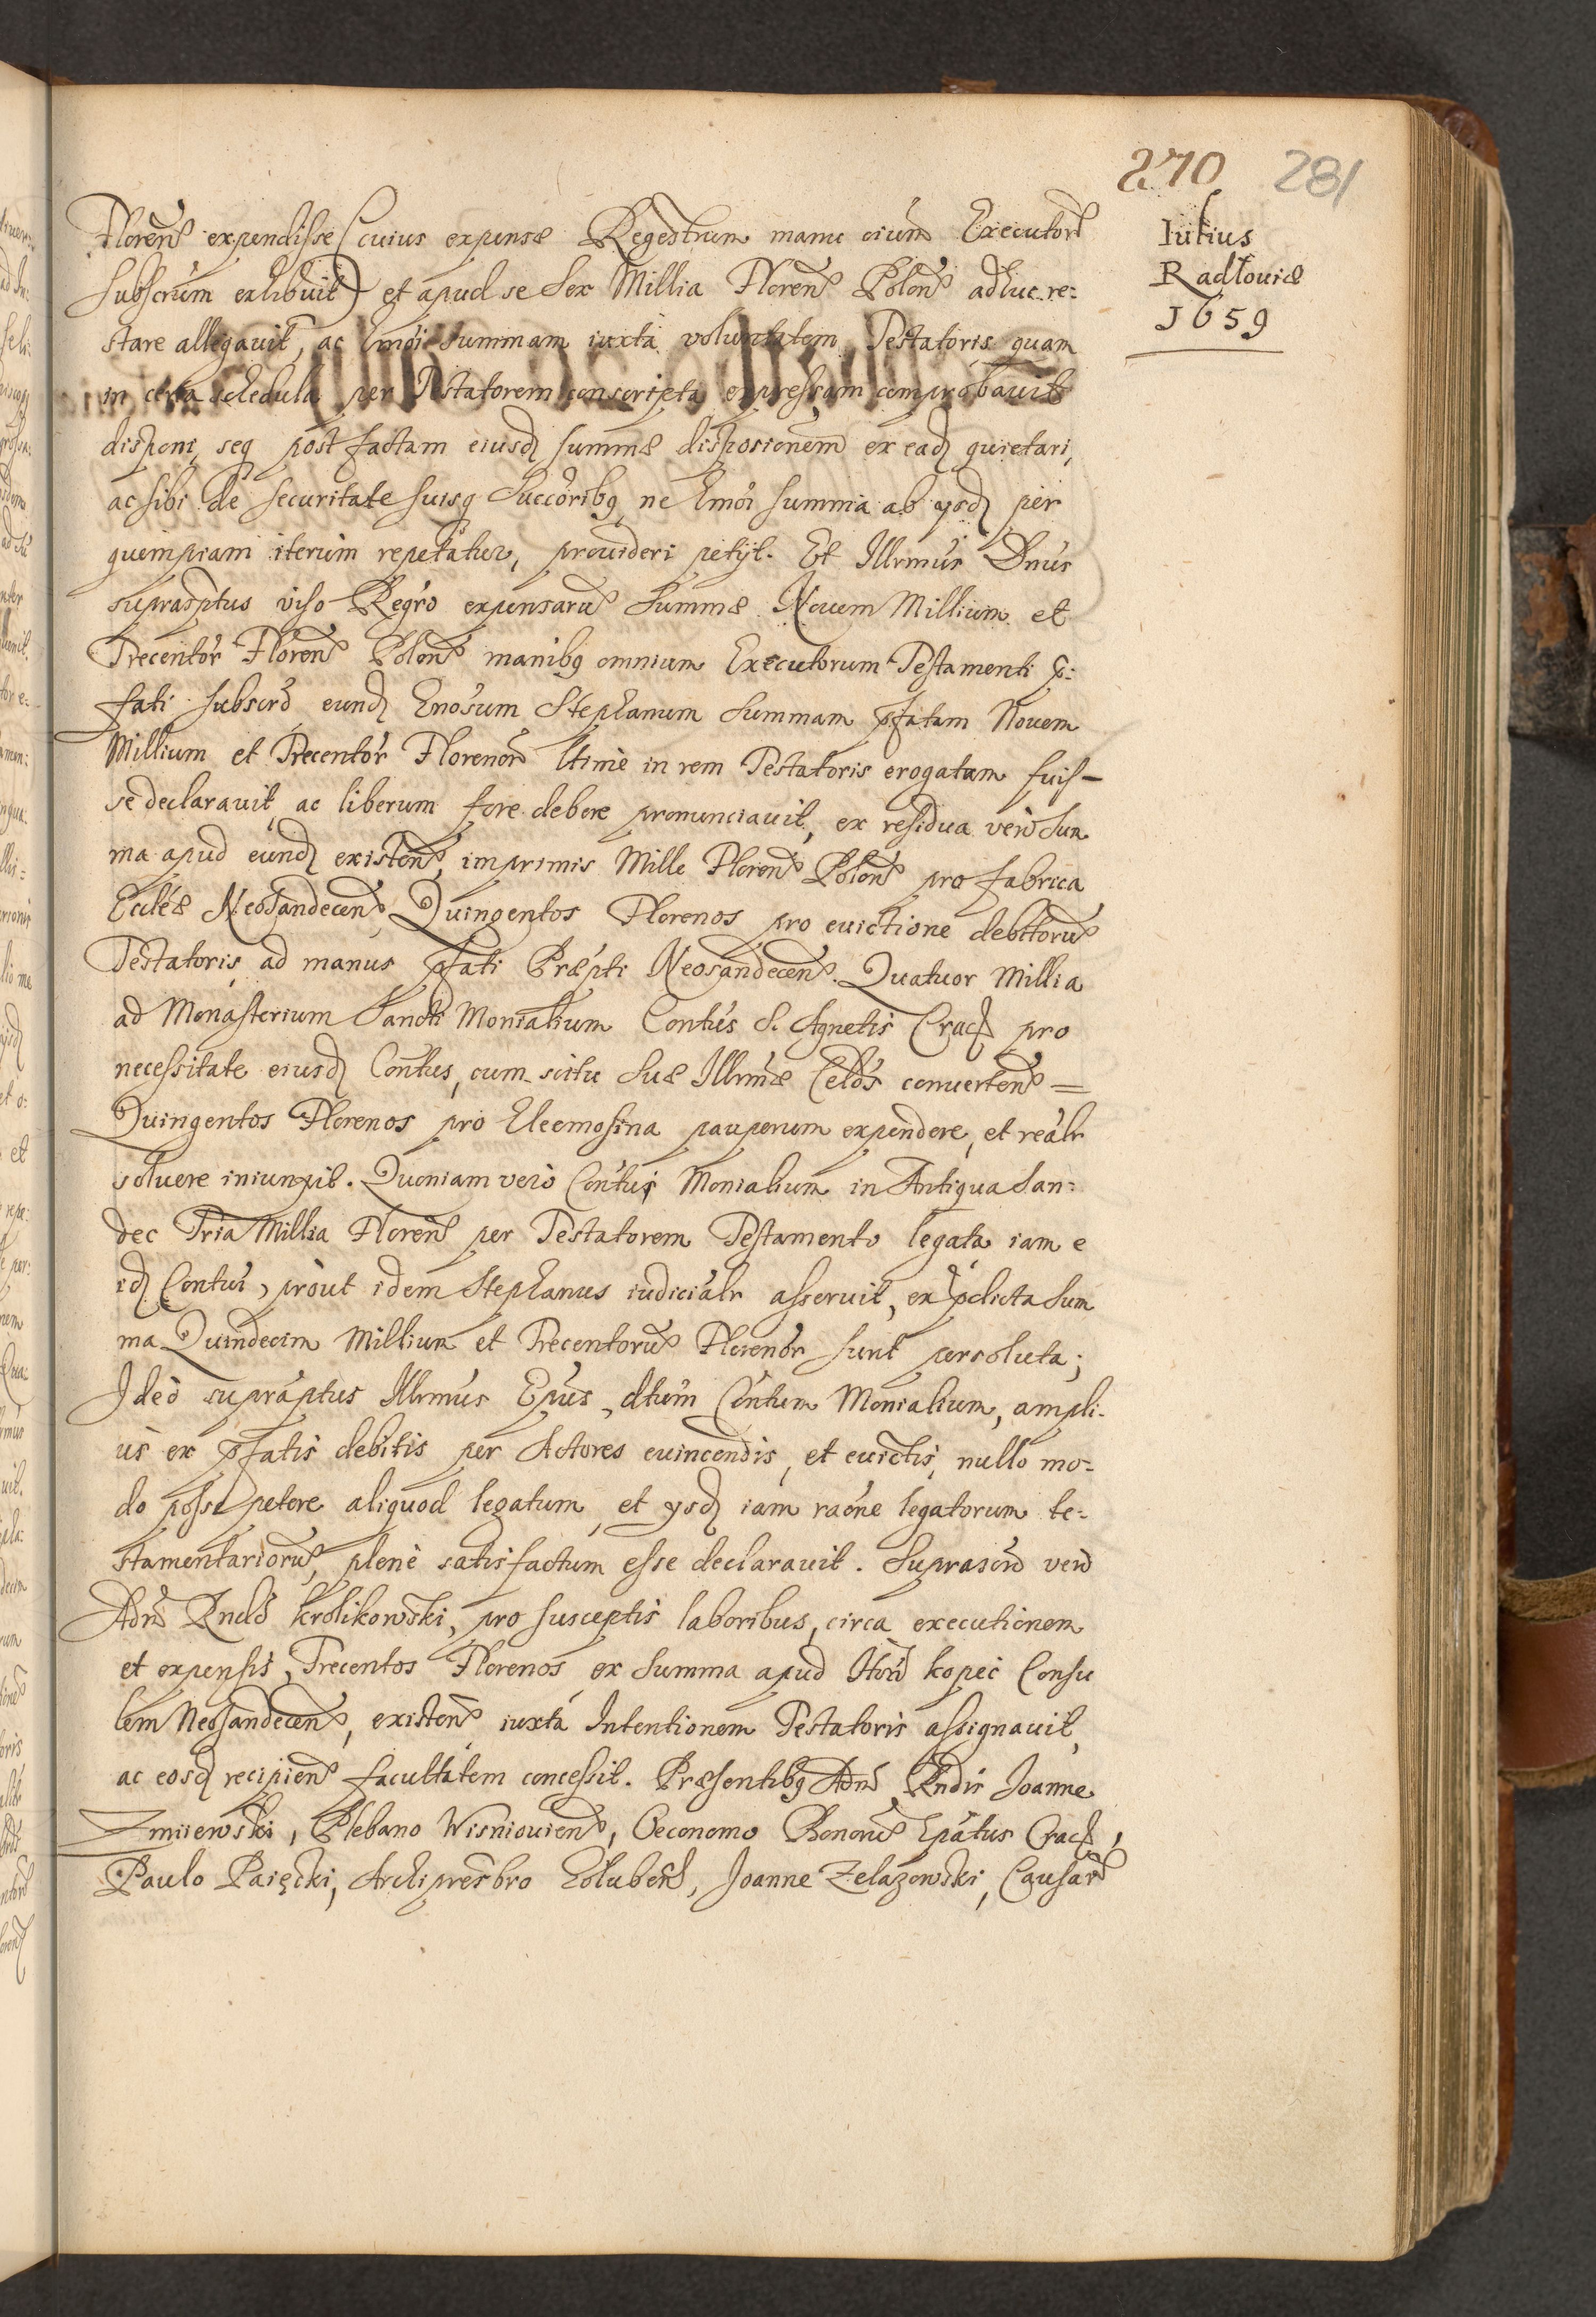 270 281
Iulius
Radłouiæ
1659
Florenῦ expendisse (cuius expensæ Regestrum manu oium Executorῦ
subscrum exhibuit) et apud se Sex Millia Florenῦ Polonῦ adhuc re:
stare allegauit, ac hmoi summam iuxta voluntatem Testatoris quam
in certa schedula per Testatorem conscripta expressam comprobauit
disponi, seq post factam eiusd summæ disposionem ex ead quietari,
ac sibi de securitate suisq Succoribq ne hmoi summa ab ysd per
quempiam iterum repetatur, prouideri petijt. Et Illrmus Dnus
suprasptus viso Regro expensarῦ Summæ Nouem Millium et
Trecentor Florenῦ Polonῦ manibq omnium Executorum Testamenti p:
fati subscrῦ eund Gnosum Stephanum Summam pfatam Nouem
Millium et Trecentor Florenorῦ ltime in rem Testatoris erogatam fuis-
se declarauit, ac liberum fore debere pronunciauit, ex residua vero Sum
ma apud eund existenῦ, imprimis Mille Florenῦ Polonῦ pro fabrica
Ecclæ Neosandecenῦ, Quingentos Florenos pro euictione debitorῦ
Testatoris ad manus pfati Præpti Neosandecenῦ. Quatuor Millia
ad Monasterium Sancti Monialium Contus S. Agnetis Crac pro
necessitate eiusd Contus, cum scitu Suæ Illrmæ Celds conuertenῦ =
Quingentos Florenos pro Eleemosina pauperum expendere, et realr
soluere iniunxit. Quoniam vero Contui Monialium in Antiqua San:
dec Tria Millia Florenῦ per Testatorem Testamento legata iam e
id Contui, prout idem Stephanus iudicialr asseruit, ex pdicta Sum
ma Quindecim Millium et Trecentorῦ Florenor sunt persoluta;
Ideo supraptus Illrmus Epus, dtum Contum Monialium, ampli-
us ex pfatis debitis per Actores euincendis, et euictis, nullo mo-
do posse petere aliquod legatum, et ysd iam raone legatorum te-
stamentariorῦ, plene satisfactum esse declarauit. Suprascrῦ vero
Admῦ Rndῦ Krolikowski, pro susceptis laboribus, circa executionem
et expensis, Trecentos Florenos ex Summa apud Honῦ Kopec Consu
lem Neosandecenῦ, existenῦ iuxta Intentionem Testatoris assignauit,
ac eosd recipienῦ facultatem concessit. Præsentibq Admῦ Rndis Joanne
Zmiiewski, Plebano Wisniouienῦ, Oeconomo Bonorῦ Epatus Crac,
Paulo Paięcki, Archipresbro Gołubenῦ, Joanne Zelazowski, Causarῦ